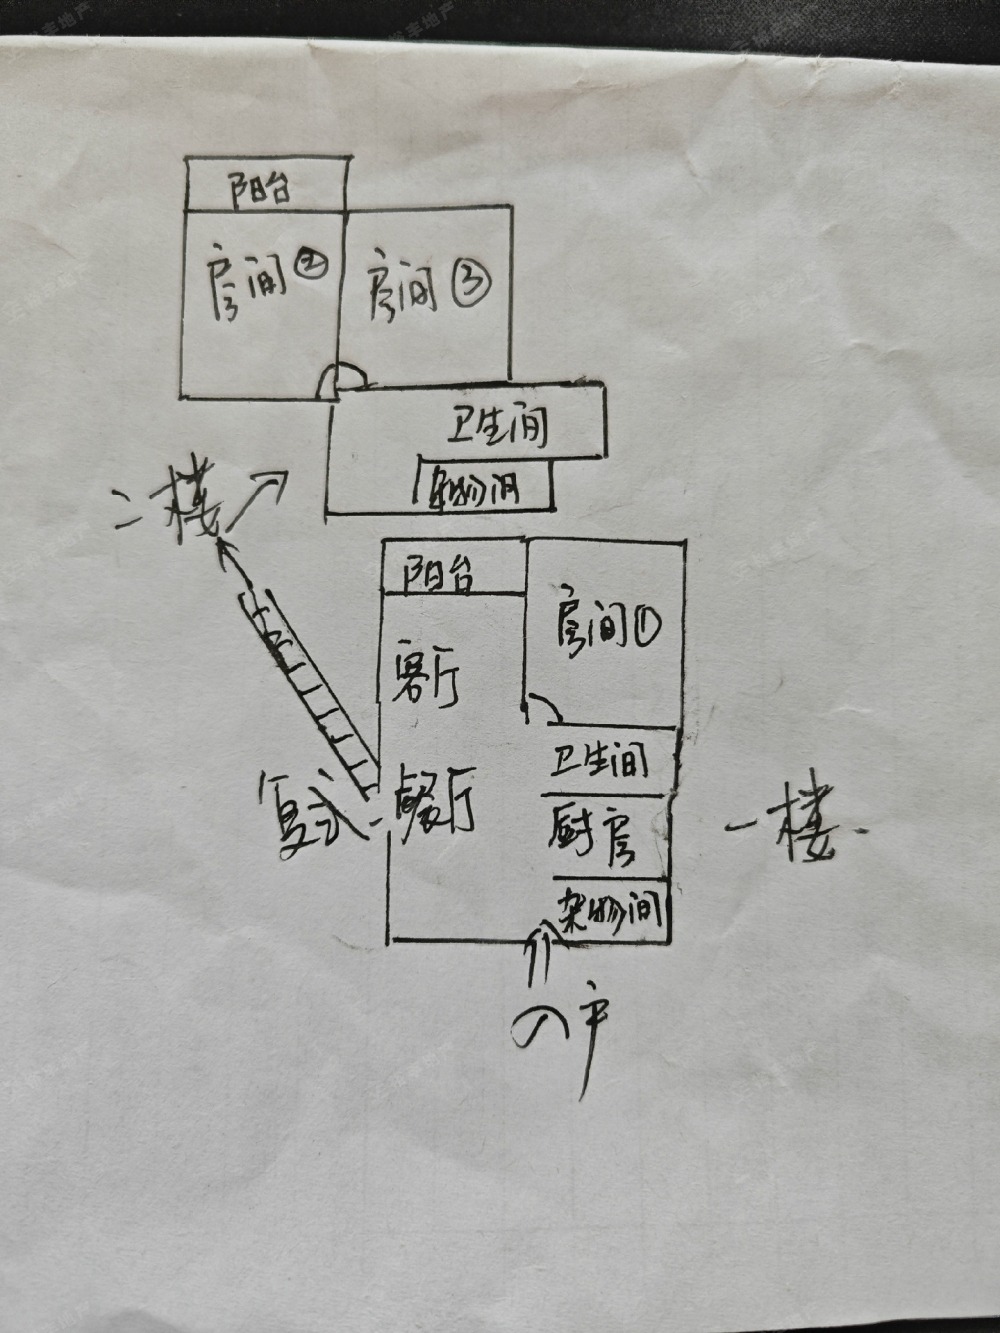 阳台
房间②
房间③
卫生间
杂物间
二楼
阳台
房间①
客厅
卫生间
复式
餐厅
厨房
一楼
杂物间
入户